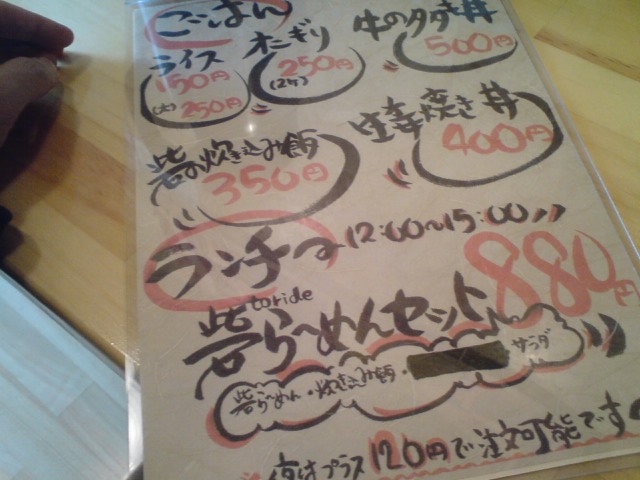 ごはん
ライス
150円
(大) 250円
おにぎり
250円
(2ケ)
牛のタタキ丼
500円
砦の炊き込み飯
350円
生姜焼き丼
400円
ランチ 12:00〜15:00
toride
砦ら〜めんセット 880円
砦ら〜めん・炊き込み飯・ サラダ
プラス120円で注文可能です